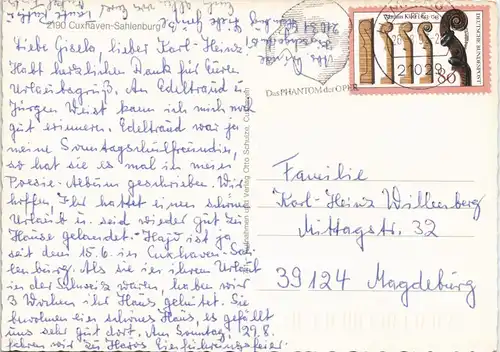 2190 Cuxhaven-Sahlenburg
Liebe Gisela, lieber Karl-Heinz
Habt herzlichen Dank für Euren
Urlaubsgruß. An Edeltraud u.
Jürgen Weist kann ich mich noch
gut erinnern. Edeltraud war ja
meine Sonntagschulfreundin,
so hat sie es mal in mein
Poesie-Album geschrieben. Wir
hoffen, Ihr hattet einen schönen
Urlaub u. seid wieder gut zu
Hause gelandet. Hajo ist ja
seit dem 15.6. in Cuxhaven-Sah-
lenburg. Als sie in ihrem Urlaub
in der Schweiz waren, haben wir
3 Wochen ihr Haus gehütet. Sie
bewohnen ein schönes Haus, es gefällt
uns sehr gut dort. Am Sonntag 29.8.
fahren wir zu Hajos Einführungsfeier
Verlag Otto Schulze, Cuxhaven
Das PHANTOM der OPER
21029
80
DEUTSCHE BUNDESPOST
Familie
Karl-Heinz Willenberg
Mittagstr. 32
39124 Magdeburg